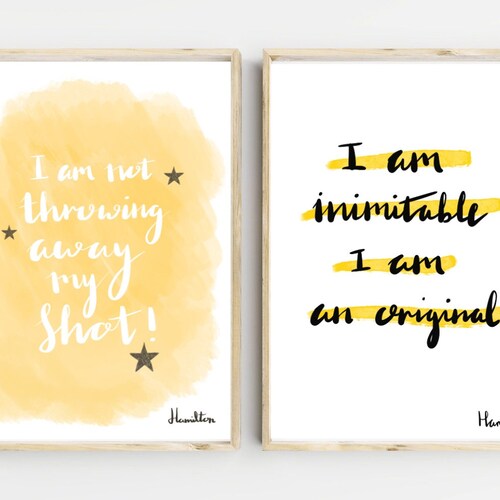 I am not
throwing
away
my
Shot!
Hamilton
I am
inimitable
I am
an original